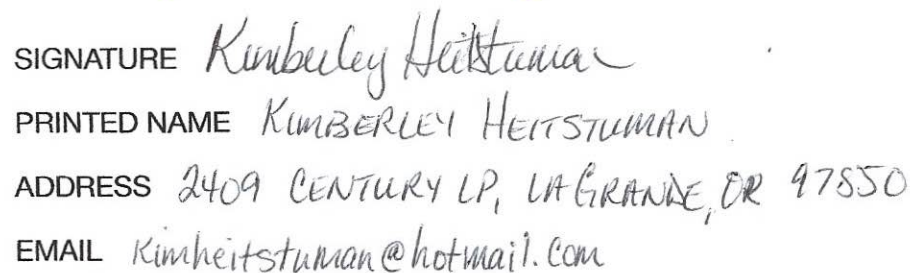 SIGNATURE Kimberley Heitstuman
PRINTED NAME KIMBERLEY HEITSTUMAN
ADDRESS 2409 CENTURY LP, LA GRANDE, OR 97850
EMAIL Kimheitstuman@hotmail.com